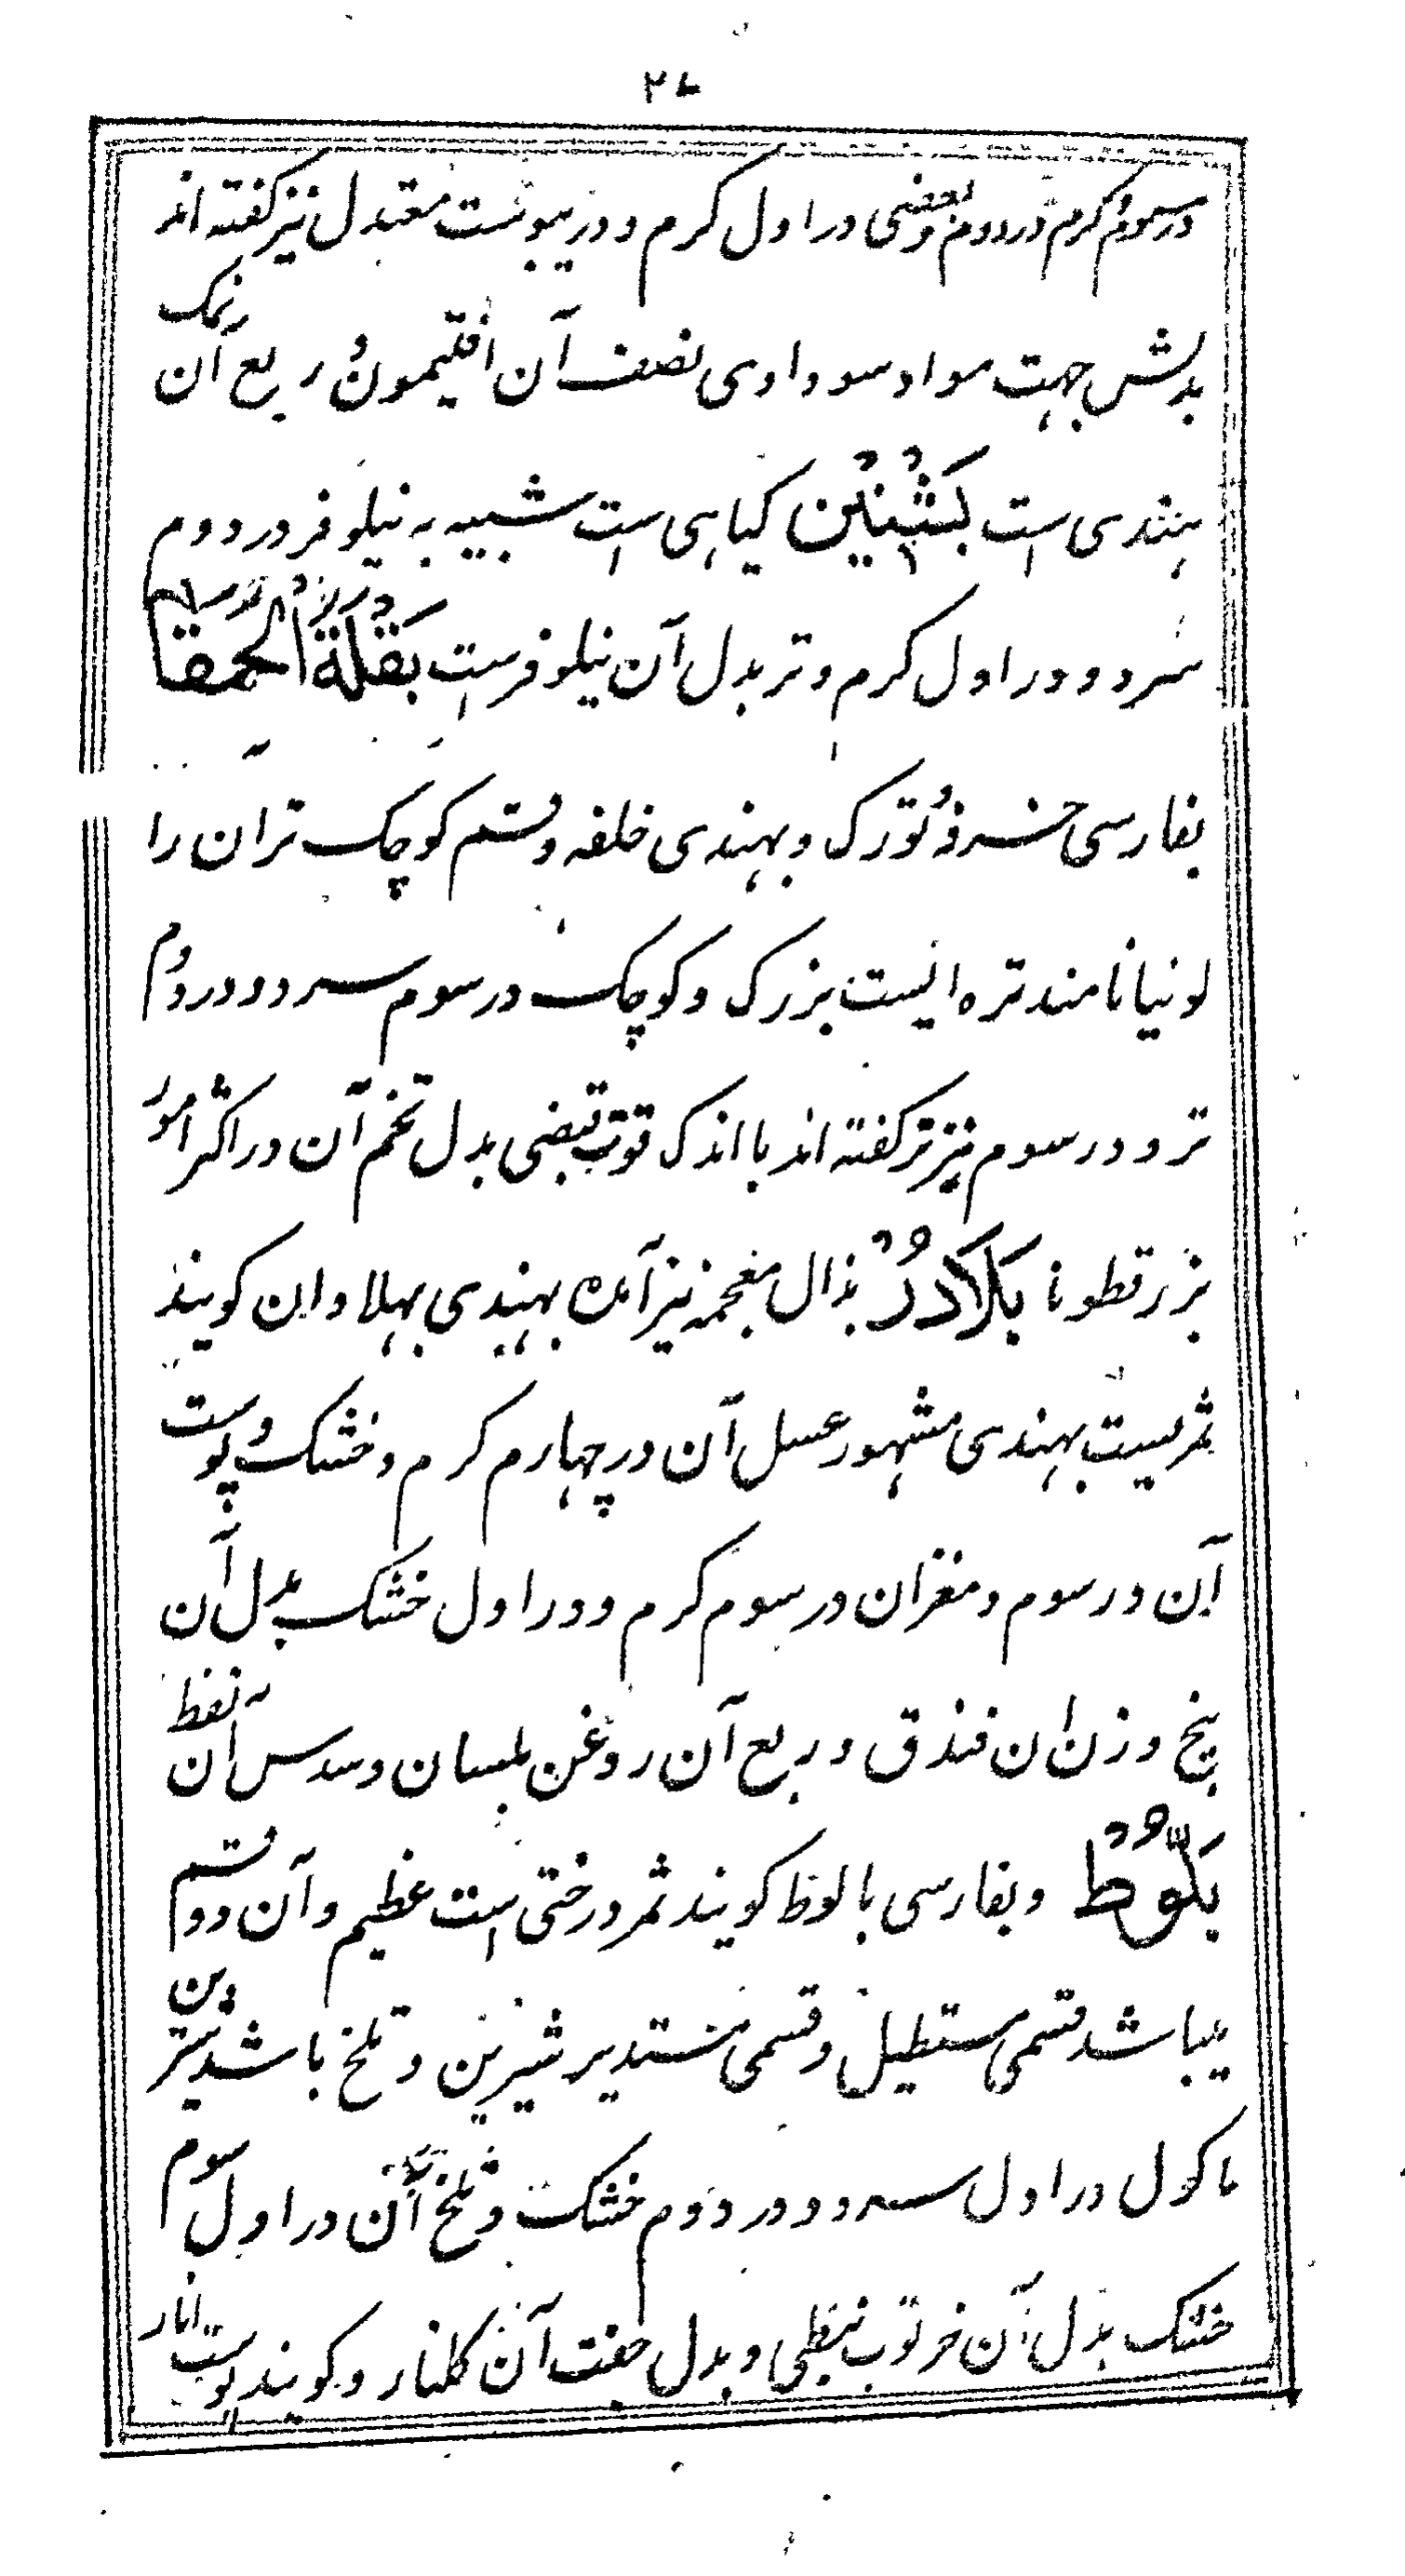 ۲۸
در سوم گرم در دوم و بعضی در اول گرم و در یبوست معتدل نیز گفته اند
بدلش جهت مواد سوداوی نصف آن افتیمون و ربع آن نمک
هندی است بَشْنِیْن گیاهی است شبیه به نیلوفر در دوم
سرد و در اول گرم و تر بدل آن نیلوفر است بَقَلَة الحمقا
بفارسی خرفه و تورک و بهندی خلفه و قسم کوچک تر ان را
لونیا نامند تره ایست بزرگ و کوچک در سوم سرد و در دوم
تر و در سوم نیز تر گفته اند با اندک قوت قبضی بدل تخم آن در اکثر امور
بزرقطونا بَلَادُرْ بذال معجمه نیز آمده بهندی بهلاوان گویند
ثمریست بهندی مشهور عسل آن در چهارم گرم و خشک و پوست
آن در سوم و مغز ان در سوم گرم و در اول خشک بدل آن
پنج وزن ان فندق و ربع آن روغن بلسان و سدس آن نفط
بَلّوْطْ و بفارسی بالوط گویند ثمر درختی است عظیم و آن دو قسم
میباشد قسمی مستطیل و قسمی مستدیر شیرین و تلخ باشد شیرین
ماکول در اول سرد و در دوم خشک و تلخ آن در اول سوم
خشک بدل آن خرنوب نبطی و بدل جفت آن گلنار و گویند پوست انار